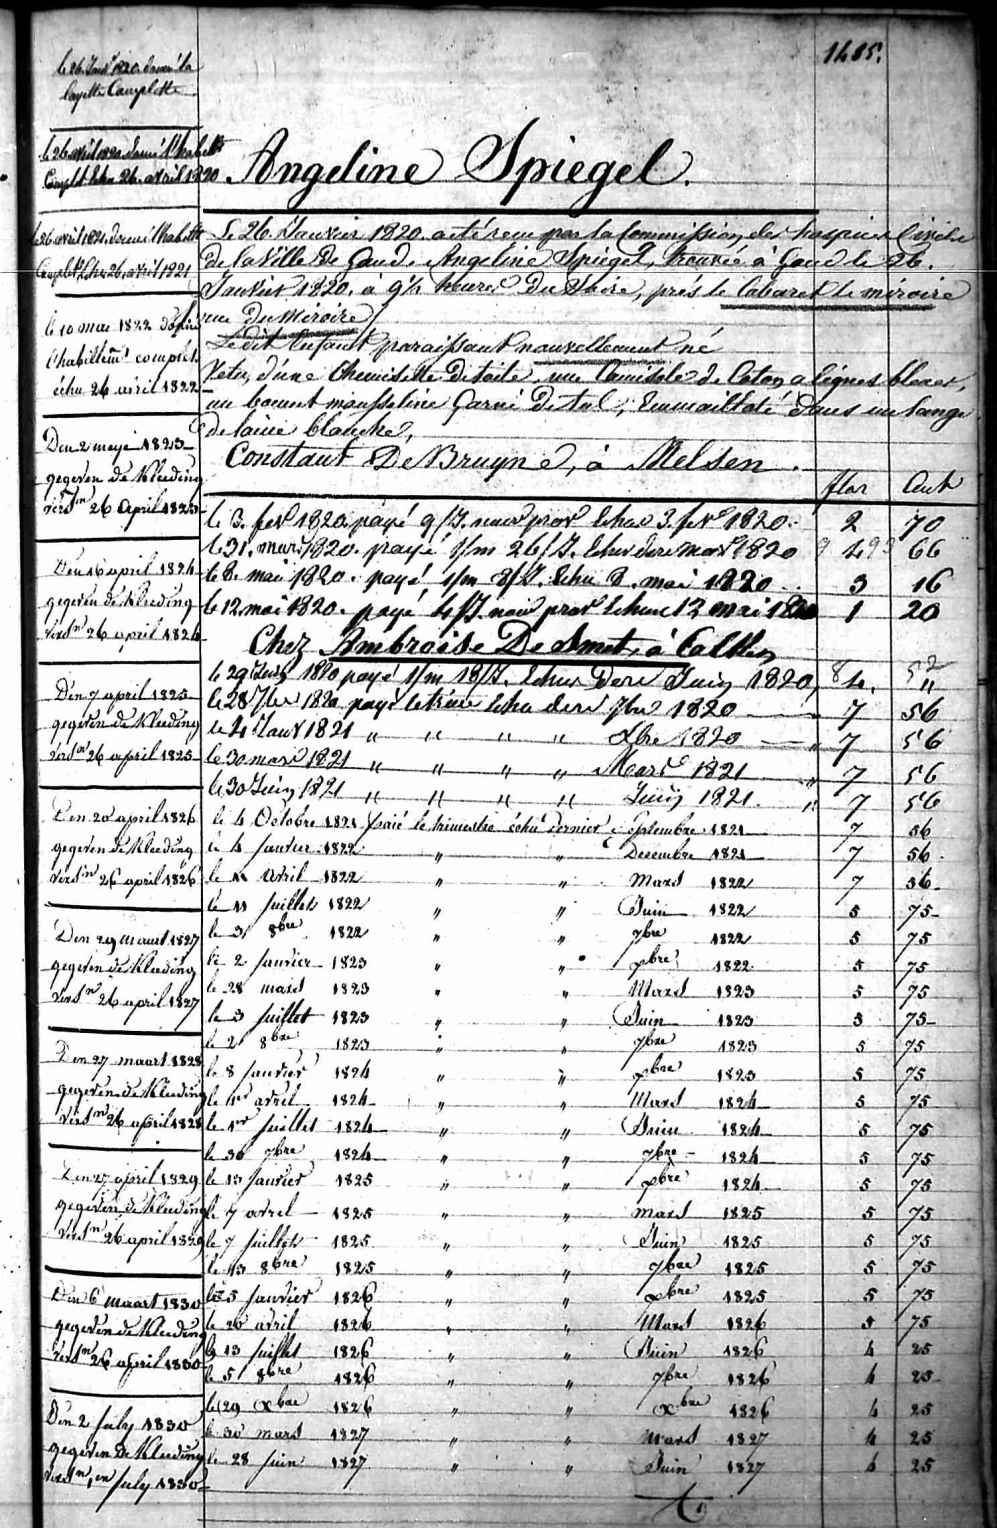 1405.
le 26 Janv 1820 donné la
layette Complette
le 26 avril 1820 donné l'habell
Complt Echu 26 avril 1820
le 26 avril 1821 donné l'habellt
Complt Echu 26 avril 1821
le 10 mai 1822
l'habillemt complet
échu 26 avril 1822
Den 2 meye 1823
gegeven de Kleeding
versn 26 April 1823
Den 16 april 1824
gegeven de Kleeding
versn 26 april 1824
Den 7 april 1825
gegeven de Kleeding
versn 26 april 1825
Den 20 april 1826
gegeven de Kleeding
versn 26 april 1826
Den 29 maart 1827
gegeven de Kleeding
versn 26 april 1827
Den 27 maart 1828
gegeven de Kleeding
versn 26 april 1828
Den 27 april 1829
gegeven de Kleeding
versn 26 april 1829
Den 6 maart 1830
gegeven de Kleeding
versn 26 april 1830
Den 2 July 1830
gegeven de Kleeding
versn in July 1830
Angeline Spiegel.
Le 26 Janvier 1820 a été reçu par la Commission des hospices Civils
de la Ville de Gand. Angeline Spiegel, trouvée à Gand le 26.
Janvier 1820, à 9½ heures Du Soire, près le Cabaret le miroire
rue du Miroire
Le dit Enfant paraissant nouvellement né
Vetu, d'une Chemisette de toile, une Camisole de Coton a lignes bleues,
un bonnet mousseline Garni de tul, Emmailloté dans un lange
de laine blanche,
Constant De Bruyne, à Melsen.
flor Cent
le 3. fevr 1820. payé 9/J. nour prov Echue 3. fevr 1820. 2 70
le 31. mars 1820. payé 1/m 26/J. Echu dere mars 1820 66
le 8. mai 1820. payé 1/m 8/J. Echu 8. mai 1820 3 16
le 12 mai 1820. payé 4/J. nour prov Echue 12 mai 1820 1 20
Chez Ambroise De Smet, à Calken
le 29 Juin 1820 payé 1/m 18/J. Echus Dere Juin 1820, 4. "
le 28 7bre 1820. payé le trime Echu dere 7bre 1820 7 56
le 4 Janv 1821 " " " " Xbre 1820 " 7 56
le 30 mars 1821 " " " " Mars 1821 " 7 56
le 30 Juin 1821 " " " " Juin 1821. " 7 56
le 4 Octobre 1821 paié le trimestre échu dernier Septembre 1821 7 56
le 4 janvier 1822 " " Decembre 1821 7 56
le avril 1822 " " Mars 1822 7 56
le 11 juillet 1822 " " Juin 1822 5 75
le 31 8bre 1822 " " 7bre 1822 5 75
le 2 janvier 1823 " " xbre 1822 5 75
le 28 mars 1823 " " Mars 1823 5 75
le 3 juillet 1823 " " Juin 1823 5 75
le 2 8bre 1823 " " 7bre 1823 5 75
le 8 janvier 1824 " " xbre 1823 5 75
le 1er avril 1824 " " Mars 1824 5 75
le 1er juillet 1824 " " Juin 1824 5 75
le 30 7bre 1824 " " 7bre 1824 5 75
le 13 janvier 1825 " " xbre 1824 5 75
le 7 avril 1825 " " mars 1825 5 75
le 7 juillet 1825 " " Juin 1825 5 75
le 13 8bre 1825 " " 7bre 1825 5 75
le 5 janvier 1826 " " xbre 1825 5 75
le 26 avril 1826 " " Mars 1826 5 75
le 13 juillet 1826 " " Juin 1826 4 25
le 5 8bre 1826 " " 7bre 1826 4 25
le 29 Xbre 1826 " " Xbre 1826 4 25
le 30 mars 1827 " " mars 1827 4 25
le 28 juin 1827 " " Juin 1827 4 25